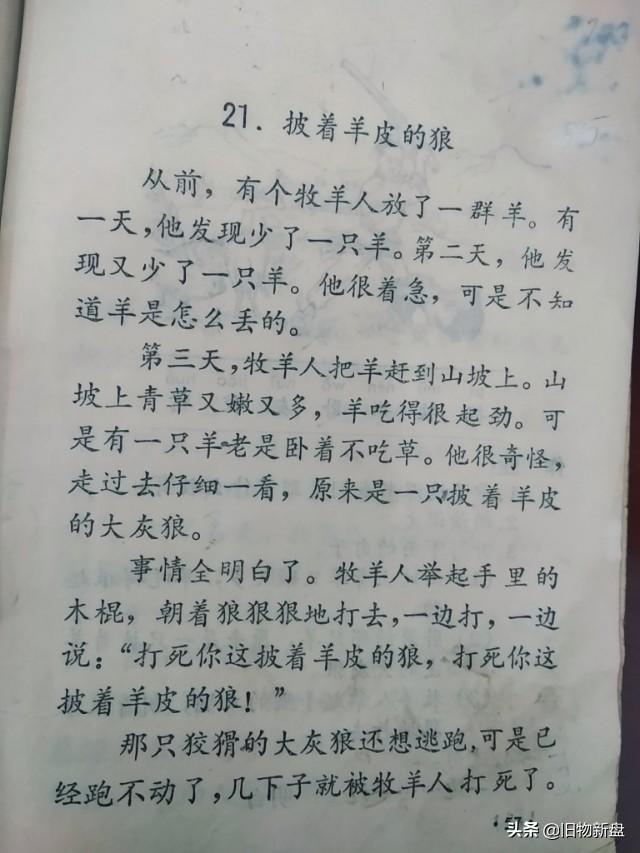 21. 披着羊皮的狼
从前，有个牧羊人放了一群羊。有
一天，他发现少了一只羊。第二天，他发
现又少了一只羊。他很着急，可是不知
道羊是怎么丢的。
第三天，牧羊人把羊赶到山坡上。山
坡上青草又嫩又多，羊吃得很起劲。可
是有一只羊老是卧着不吃草。他很奇怪，
走过去仔细一看，原来是一只披着羊皮
的大灰狼。
事情全明白了。牧羊人举起手里的
木棍，朝着狼狠狠地打去，一边打，一边
说：“打死你这披着羊皮的狼，打死你这
披着羊皮的狼！”
那只狡猾的大灰狼还想逃跑，可是已
经跑不动了，几下子就被牧羊人打死了。
·57·
头条 @旧物新盘